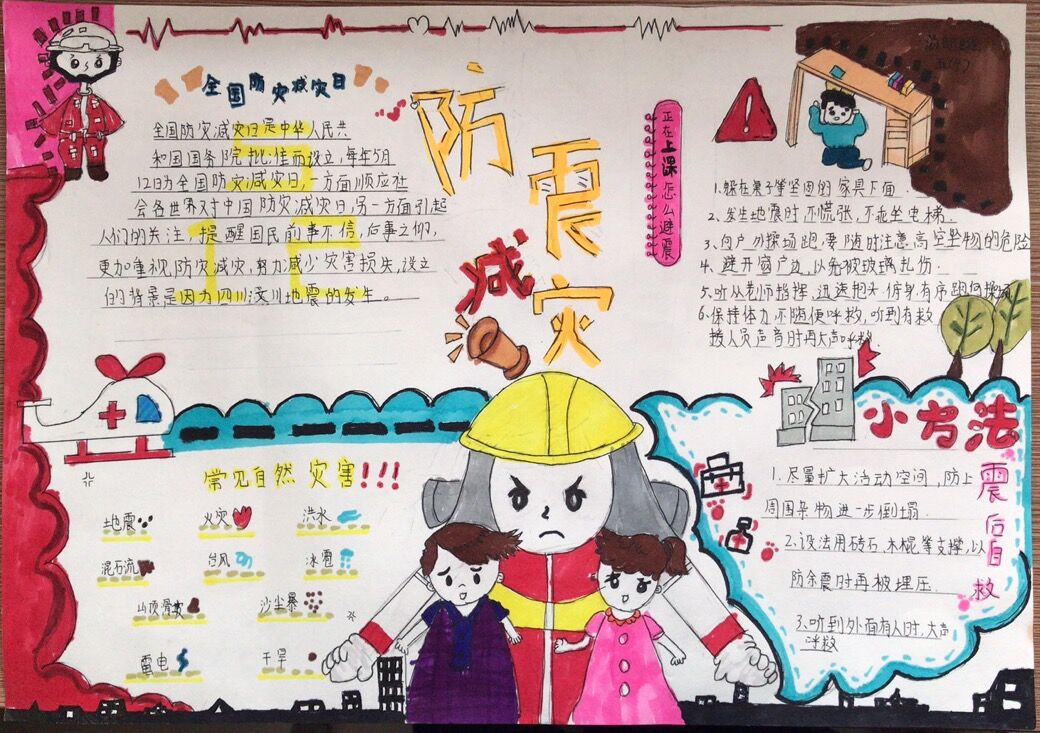 全国防灾减灾日
全国防灾减灾日是中华人民共
和国国务院批准而设立，每年5月
12日为全国防灾减灾日，一方面顺应社
会各世界对中国防灾减灾日，另一方面引起
人们的关注，提醒国民前事不信，后事之师，
更加重视防灾减灾，努力减少灾害损失，设立
的背景是因为四川汶川地震的发生。
防
震
减
灾
正在上课怎么避震
1.躲在桌子等坚固的家具下面.
2、发生地震时不慌张，不乖坐电梯.
3、向户外操场跑，要随时注意高空坠物的危险
4、避开窗户边，以免被玻璃扎伤.
5、听从老师指挥，迅速抱头俯身有序跑向操场
6、保持体力不随便呼救，听到有救
援人员声音时再大声呼救.
常见自然灾害!!!
地震
火灾
洪水
泥石流
台风
冰雹
山顶滑坡
沙尘暴
雷电
干旱
小方法
震后自救
1.尽量扩大活动空间，防止
周围杂物进一步倒塌.
2.设法用砖石、木棍等支撑，以
防余震时再被埋压.
3、听到外面有人时，大声
呼救